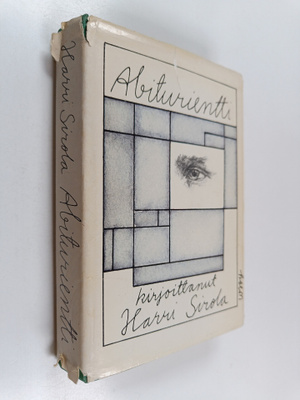 Harri Sirola Abiturientti
Abiturientti
kirjoittanut
Harri Sirola